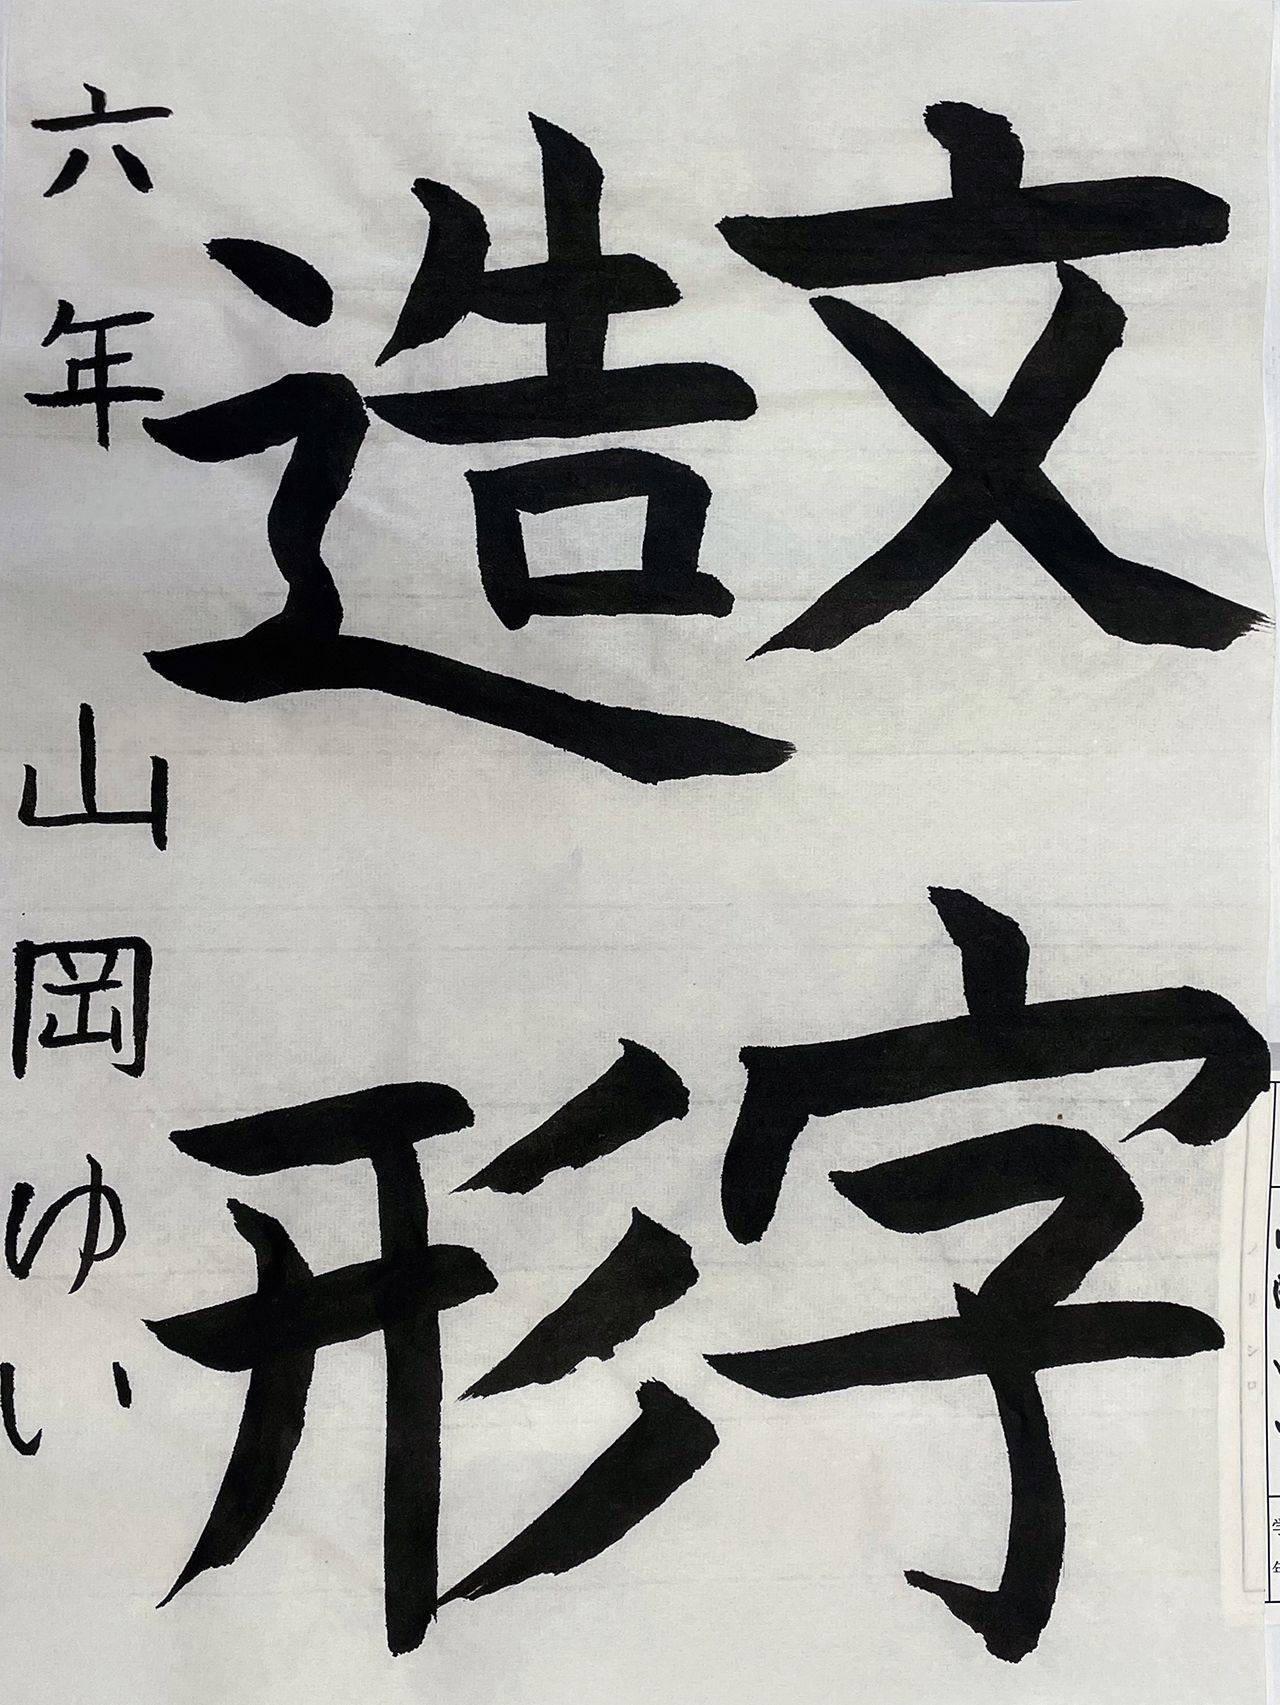 文字
造形
六年 山岡ゆい
学年